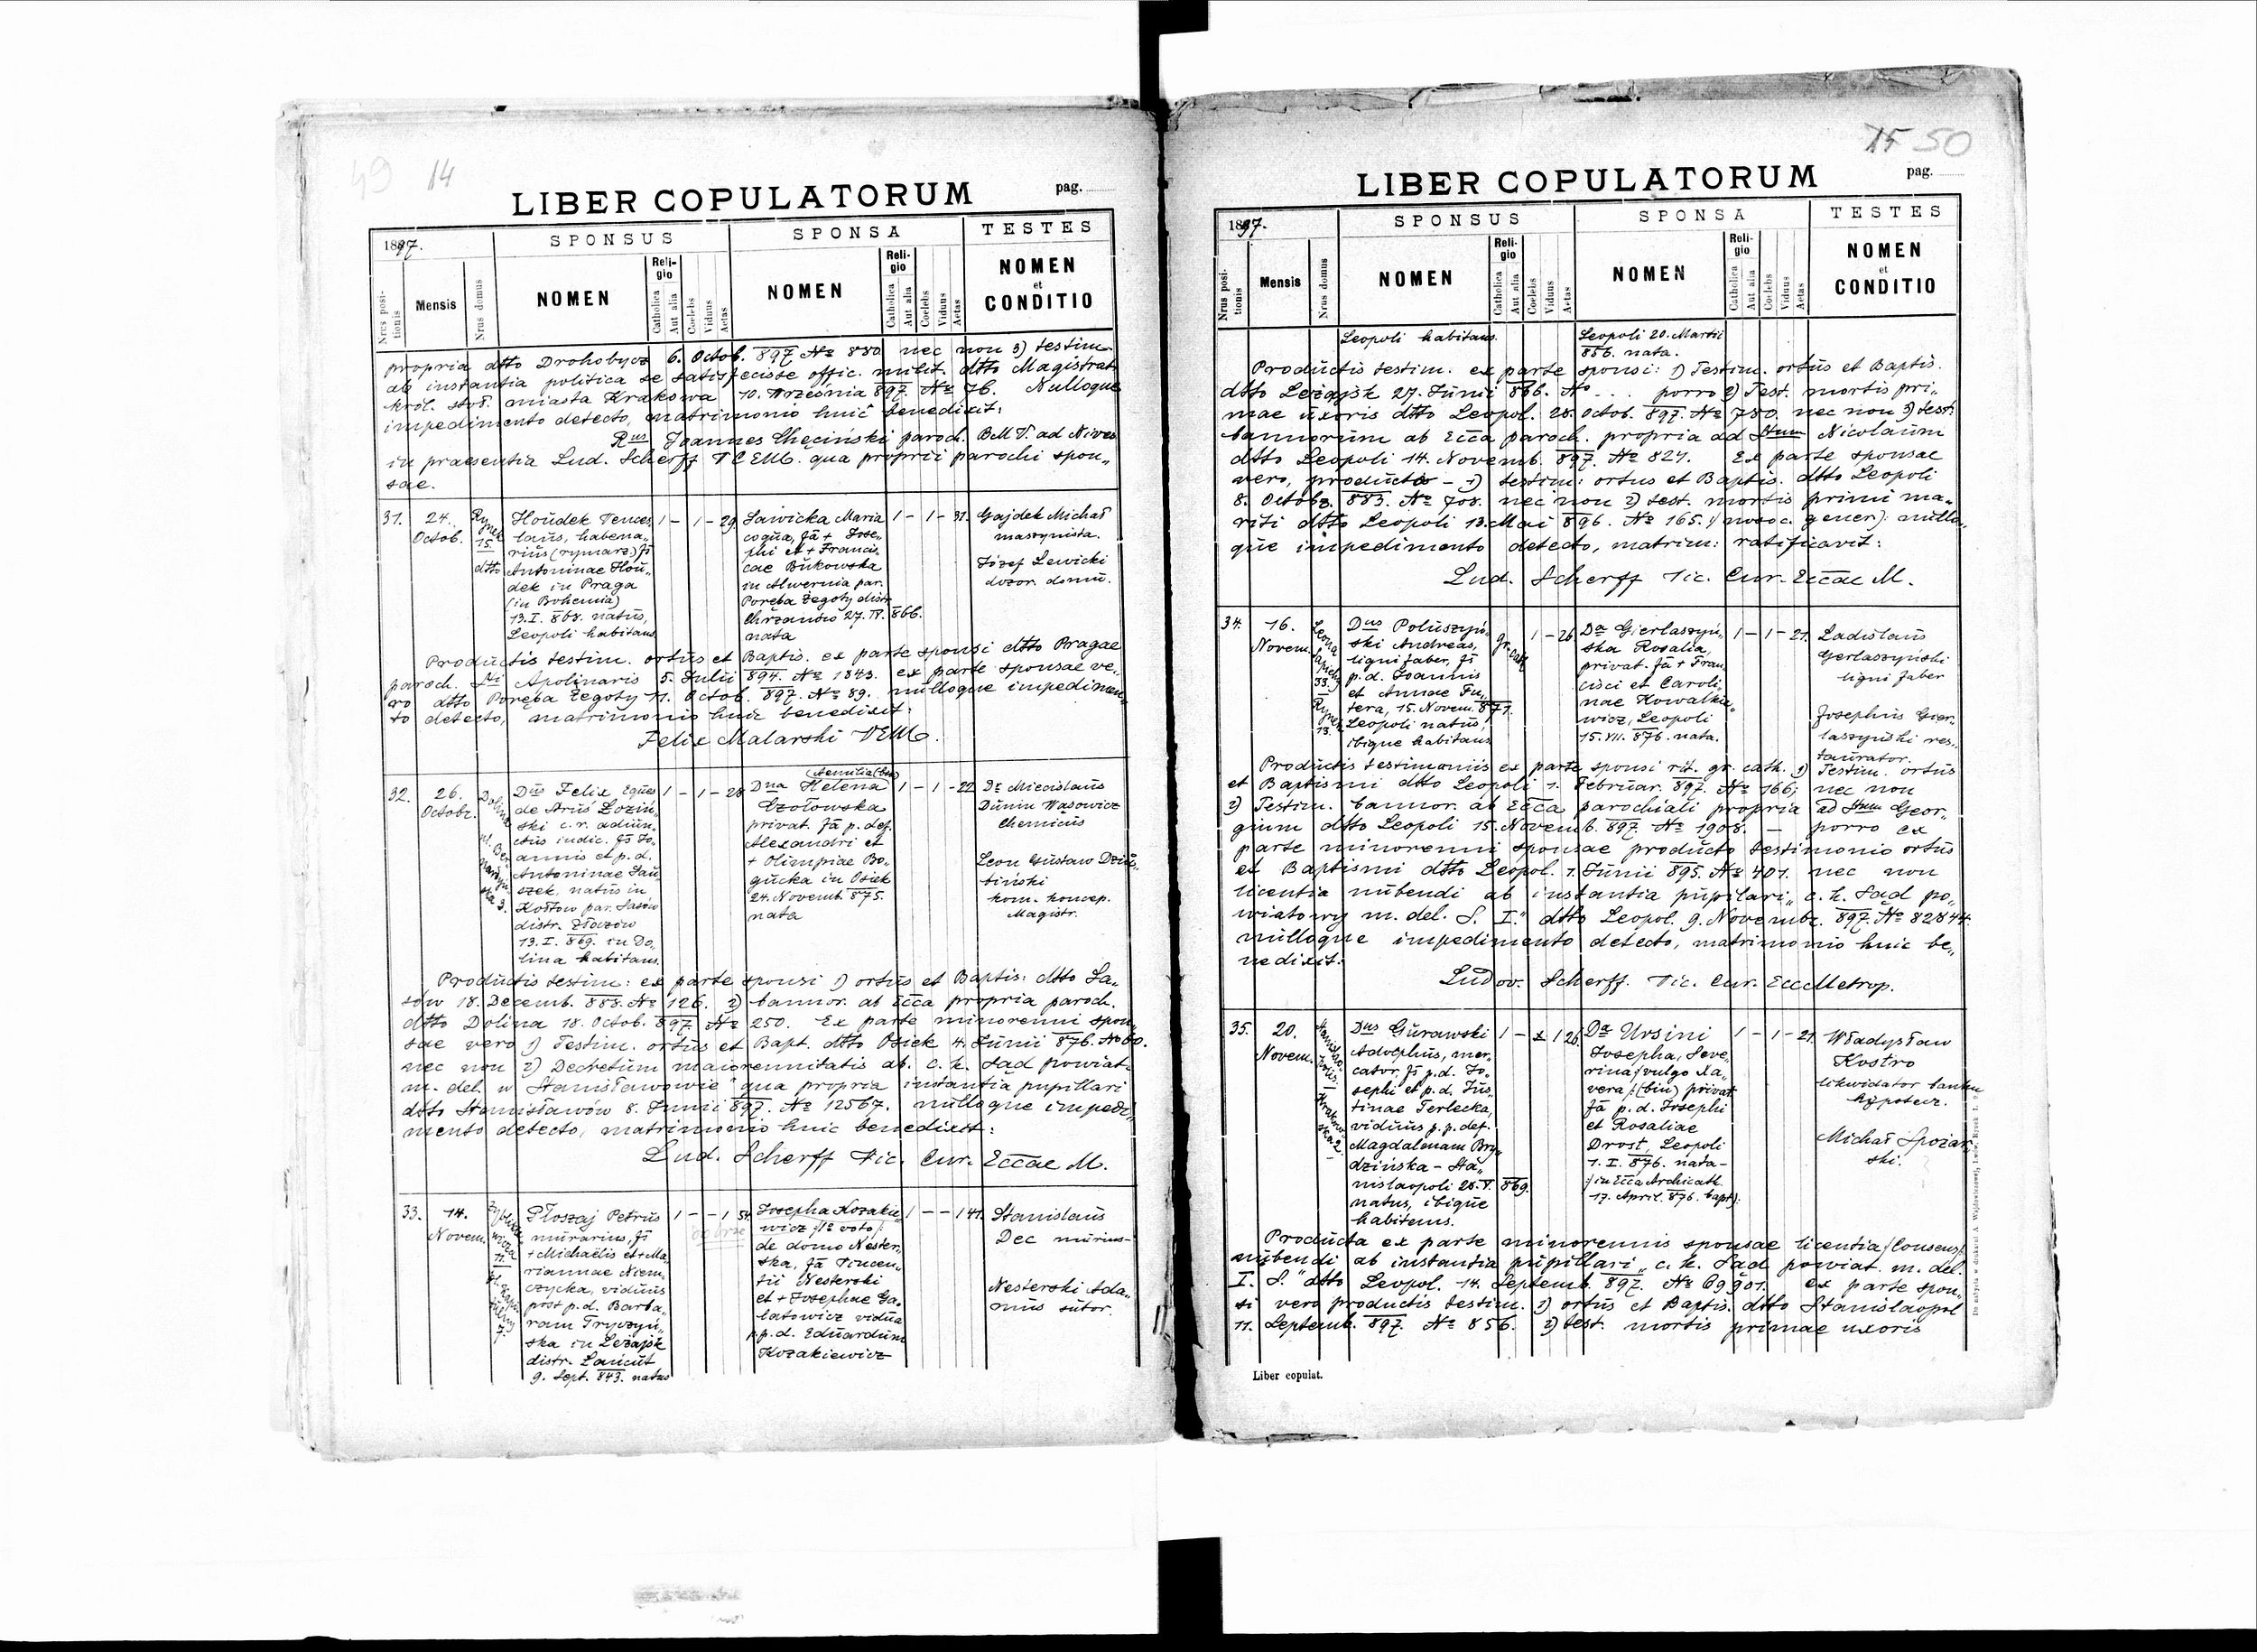 49 14
LIBER COPULATORUM
pag.
1897.
SPONSUS
SPONSA
TESTES
Nrus positionis
Mensis
Nrus domus
NOMEN
Religio
Catholica
Aut alia
Coelebs
Viduus
Aetas
NOMEN
Religio
Catholica
Aut alia
Coelebs
Viduus
Aetas
NOMEN
et
CONDITIO
propria dtto Drohobycz 6. Octob. 897 No 880 nec non 3) testim.
ab instantia politica se satisfecisse offic. milit. dtto Magistrat
król. stoł. miasta Krakowa 10. Września 897. No 76. Nulloque
impedimento detecto, matrimonio huic benedixit:
Rus Joannes Chęciński paroch. B.M.V. ad Nives
in praesentia Lud. Scherff VCEM. qua proprii parochi spon„
sae.
31.
24.
Octob.
Rynek
15
dtto
Houdek Vences„
laus, habena„
rius (rymarz) fs
Antoninae Hou„
dek in Praga
(in Bohemia)
13.I. 868. natus,
Leopoli habitans
1 – 1 – 29.
Sawicka Maria
coqua, fa + Jose„
phi et + Francis„
cae Bukowska
in Alwernia par.
Poręba Żegoty distr.
Chrzanów 27. IV. 866.
nata
1 – 1 – 31.
Gajdek Michał
maszynista.
Józef Lewicki
dozor. domu.
Productis testim. ortus et Baptis. ex parte sponsi dtto Pragae
paroch. Sti Apolinaris 5. Julii 894. No 1843. ex parte sponsae ve„
ro dtto Poręba Żegoty 11. Octob. 897. No 89. nulloque impedimen„
to detecto, matrimonio huic benedixit:
Felix Malarski VEM.
32.
26.
Octobr.
Dolina
Dus Felix Eques
de Arus Łoziń„
ski c.r. adiun„
ctus iudic. fs Jo„
annis et p.d.
Antoninae Łau„
szek, natus in
Kołtow par. Sasów
distr. Złoczów
13.I. 869. in Do„
lina habitans.
1 – 1 – 28
(Aemilia (bin)
Dna Helena
Czołowska
privat. fa p. def.
Alexandri et
+ Olimpiae Bo„
gucka in Osiek
24. Novemb. 875.
nata
1 – 1 – 22
Dr Miecislaus
Dunin Wąsowicz
Chemicus
Leon Gustaw Dziu„
biński
kom. koncep.
Magistr.
Productis testim: ex parte sponsi 1) ortus et Baptis: dtto Sa„
sów 18. Decemb. 888. No 126. 2) bannor. ab Eccâ propria paroch.
dtto Dolina 18. Octob. 897 No 250. Ex parte minorenni spon„
sae vero 1) Testim. ortus et Bapt. dtto Osiek 4. Junii 876. No 60.
nec non 2) Decretum maiorennitatis ab. c.k. Sąd powiat.
m. del. w Stanisławowie" qua propria instantia pupillari
dtto Stanisławów 8. Junii 897. No 12567. nulloque impedi„
mento detecto, matrimonio huic benedixit:
Lud. Scherff Vic. Cur. Eccae M.
33.
14.
Novem.
Płoszaj Petrus
murarius, fs
+ Michaëlis et + Ma„
riannae Niem„
czycka, viduus
post p.d. Barba„
ram Tryczyń„
ska in Leżajsk
distr. Łańcut
9. Sept. 843. natus
1 – – 1 54
Josepha Kozakie„
wicz /: 1o voto /:
de domo Nester„
ska, fa Vincen„
tii Nesterski
et + Josephae Ga„
latowicz vidua
p.p.d. Eduardum
Kozakiewicz
1 – – 1 41.
Stanislaus
Dec murius–
Nesterski Ada„
mus sutor.
15 50
LIBER COPULATORUM
pag.
1897.
SPONSUS
SPONSA
TESTES
Nrus positionis
Mensis
Nrus domus
NOMEN
Religio
Catholica
Aut alia
Coelebs
Viduus
Aetas
NOMEN
Religio
Catholica
Aut alia
Coelebs
Viduus
Aetas
NOMEN
et
CONDITIO
Leopoli habitans.
Leopoli 20. Martii
856. nata.
Productis testim. ex parte sponsi: 1) Testim. ortus et Baptis.
dtto Leżajsk 27. Junii 866. No ... porro 2) Test. mortis pri„
mae uxoris dtto Leopol. 28. Octob. 897. No 780. nec non 3) test.
bannorum ab Eccâ paroch. propria ad Stum Nicolaum
dtto Leopoli 14. Novemb. 897. No 827. Ex parte sponsae
vero, producto – 1) testim: ortus et Baptis. dtto Leopoli
8. Octobr. 883. No 708. nec non 2) test. mortis primi ma„
riti dtto Leopoli 13. Mai 896. No 165. /: nosoc. gener): nullo„
que impedimento detecto, matrim: ratificavit:
Lud. Scherff Vic. Cur. Eccae M.
34.
16.
Novem.
Leona
Sapiehy
33.
Rynek
13.
Dus Połuszyń„
ski Andreas,
ligni faber, fs
p.d. Joannis
et Annae Fu„
tera, 15. Novem. 871.
Leopoli natus,
ibique habitans
gr. cath. 1 – 26
Da Gierlaszyń„
ska Rosalia,
privat. fa + Fran„
cisci et Caroli„
nae Kowalkie„
wicz, Leopoli
15. VII. 876. nata.
1 – 1 – 21.
Ladislaus
Gerlaszyński
ligni faber
Josephus Gier„
laszyński res„
taurator.
Productis testimoniis ex parte sponsi rit. gr. cath. 1) Testim. ortus
et Baptismi dtto Leopoli 1. Februar. 897. No 166; nec non
2) Testim. bannor. ab Eccâ parochiali propria ad Stum Geor„
gium dtto Leopoli 15. Novemb. 897. No 1908. – porro ex
parte minorenni sponsae producto testimonio ortus
et Baptismi dtto Leopol. 1. Junii 895. No 401. nec non
licentia nubendi ab instantia pupilari „c.k. Sąd po„
wiatowy m. del. S. I." dtto Leopol. 9. Novembr. 897. No 82844.
nulloque impedimento detecto, matrimonio huic be„
nedixit:
Ludov. Scherff. Vic. Cur. Ecc Metrop.
35.
20.
Novem.
Dus Gurawski
Adolphus, mer„
cator. fs p.d. Jo„
sephi et p.d. Jus„
tinae Terlecka,
viduus p.p. def.
Magdalenam Bry„
dzińska – Sta„
nislaopoli 28. V. 869.
natus, ibique
habitens.
1 – x 1 26.
Da Ursini
Josepha, Seve„
rina /: vulgo Xa„
vera /: (bin) privat.
fa p.d. Josephi
et Rosaliae
Drost, Leopoli
1. I. 876. nata –
/: in Eccâ Archicath.
17. April. 876. bapt):
1 – 1 – 21.
Władysław
Kostro
likwidator banku
hypotecz.
Michał Spożar„
ski.
Producta ex parte minorennis sponsae licentia /: Consens:/
nubendi ab instantia pupillari „c.k. Sąd powiat. m. del.
I. S." dtto Leopol. 14. Septemb. 897. No 69901. ex parte spon„
si vero productis testim. 1) ortus et Baptis. dtto Stanislaopol
11. Septemb. 897. No 856. 2) test. mortis primae uxoris
Liber copulat.